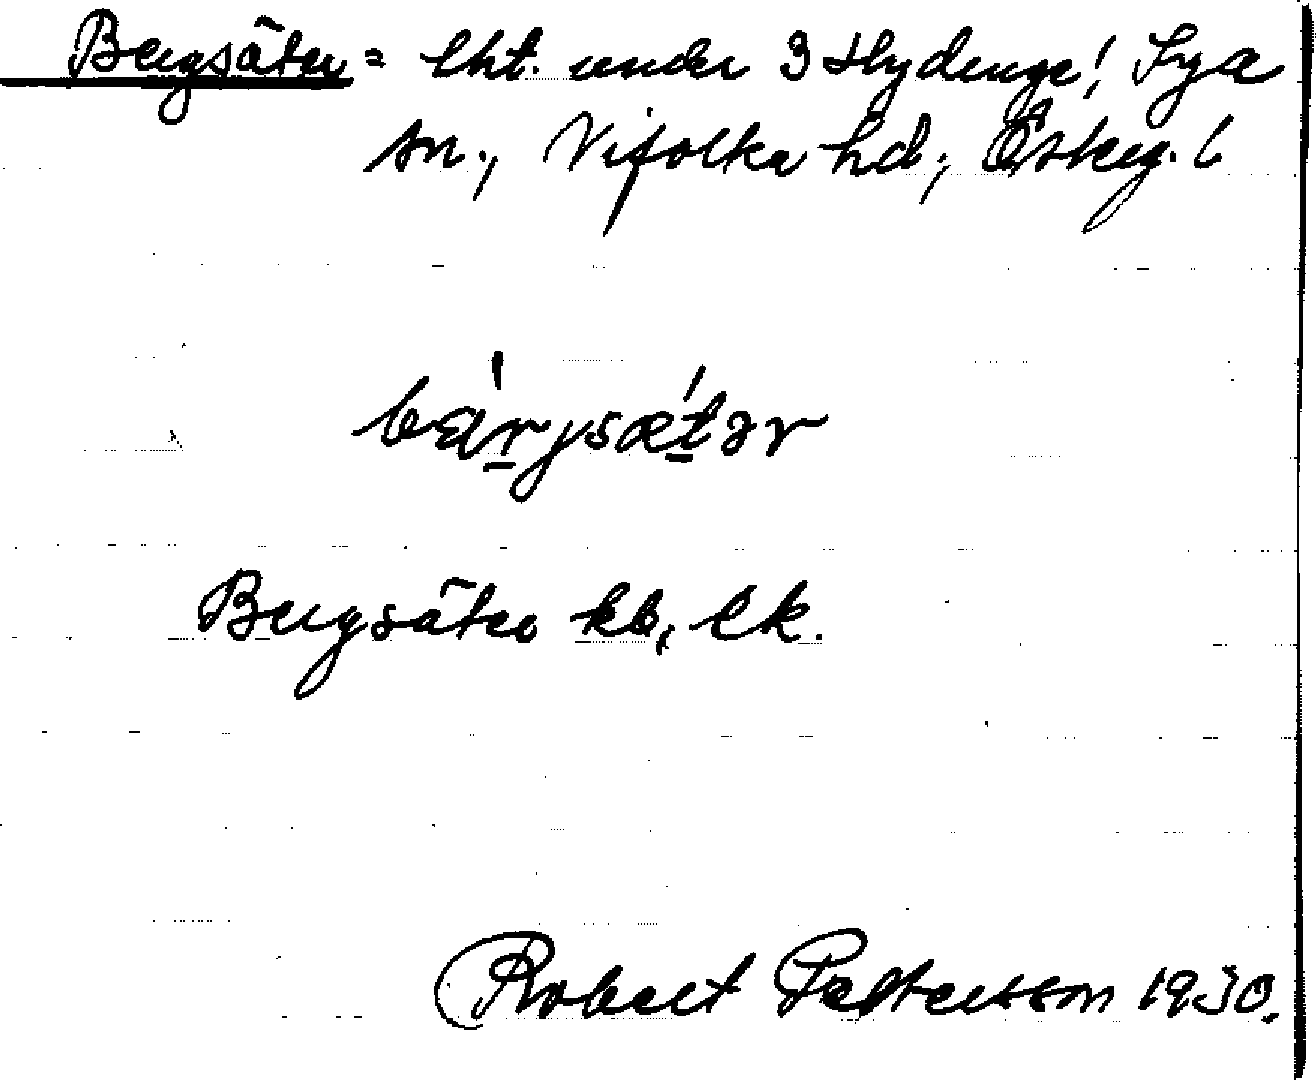 Bergsäter = lht. under 3 Hydinge! Sya
sn., Vifolka hd, Österg. l
bàrjsætər
Bergsäter kb, lk.
Robert Pettersson 1930.